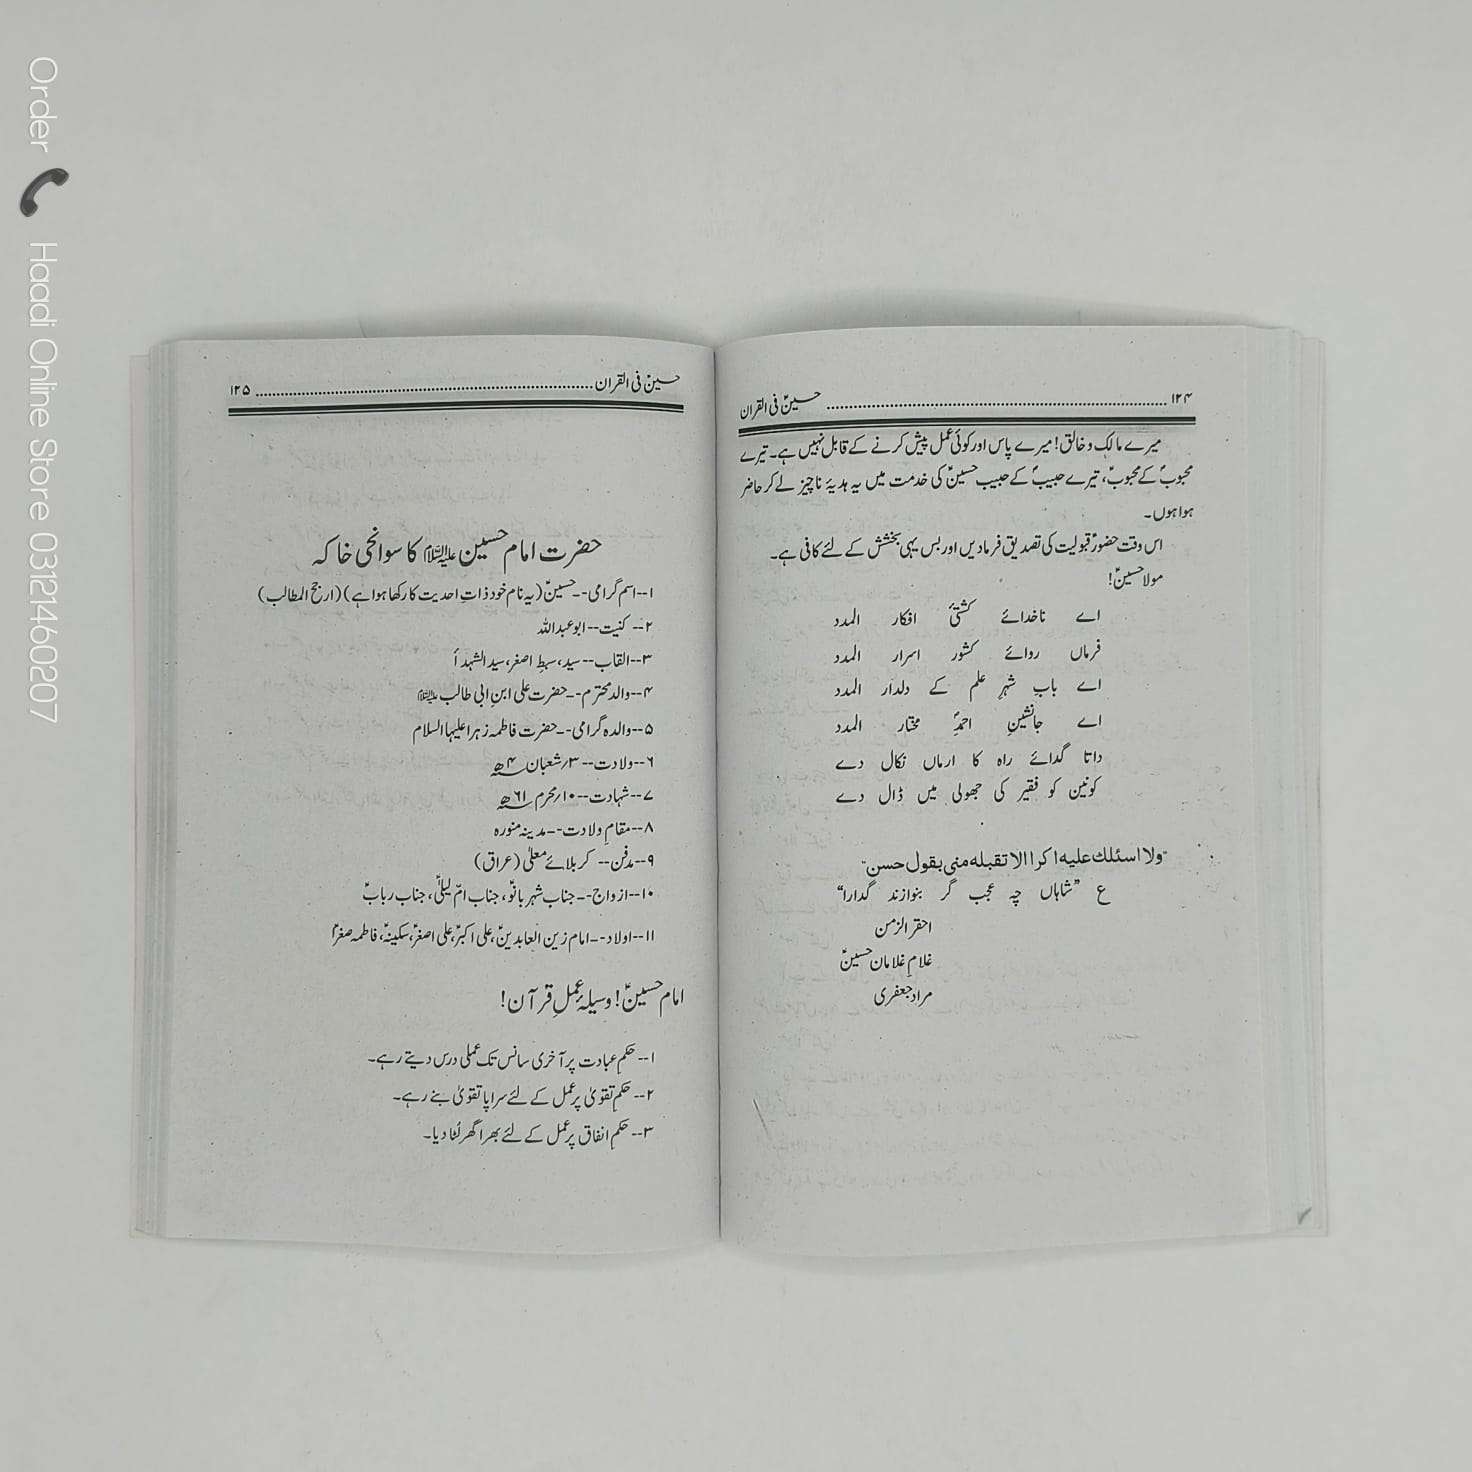 ۱۲۴ حسینؑ فی القران
میرے مالک و خالق! میرے پاس اور کوئی عمل پیش کرنے کے قابل نہیں ہے۔ تیرے
محبوبؐ کے محبوبؑ، تیرے حبیبؐ کے حبیب حسینؑ کی خدمت میں یہ ہدیۂ ناچیز لے کر حاضر
ہوا ہوں۔
اس وقت حضورؐ قبولیت کی تصدیق فرمادیں اور بس یہی بخشش کے لئے کافی ہے۔
مولا حسینؑ!
اے ناخدائے کشتئ افکار المدد
فرماں روائے کشور اسرار المدد
اے بابِ شہرِ علم کے دلدار المدد
اے جانشینِ احمدِؐ مختار المدد
داتا گدائے راہ کا ارماں نکال دے
کونین کو فقیر کی جھولی میں ڈال دے
"ولا اسئلك عليه اكرا الا تقبله منی بقول حسن"
ع "شاہاں چہ عجب گر بنوازند گدارا"
احقر الزمن
غلامِ غلامان حسینؑ
مراد جعفری
حسینؑ فی القران ۱۲۵
حضرت امام حسین علیہ السلام کا سوانحی خاکہ
۱--اسم گرامی--حسینؑ (یہ نام خود ذاتِ احدیت کا رکھا ہوا ہے) (ارجح المطالب)
۲-- کنیت--ابو عبداللہ
۳--القاب--سید، سبطِ اصغر، سید الشہدأ
۴--والد محترم--حضرت علی ابنِ ابی طالب علیہ السلام
۵--والدہ گرامی--حضرت فاطمہ زہرا علیہا السلام
۶--ولادت--۳/شعبان ۴ھ
۷--شہادت--۱۰/محرم ۶۱ھ
۸--مقامِ ولادت--مدینہ منورہ
۹--مدفن-- کربلائے معلیٰ (عراق)
۱۰--ازواج--جناب شہر بانوؑ، جناب امّ لیلیٰؑ، جناب ربابؑ
۱۱--اولاد--امام زین العابدینؑ، علی اکبرؑ، علی اصغرؑ، سکینہؑ، فاطمہ صغراؑ
امام حسینؑ! وسیلۂ عملِ قرآن!
۱-- حکمِ عبادت پر آخری سانس تک عملی درس دیتے رہے۔
۲-- حکمِ تقویٰ پر عمل کے لئے سراپا تقویٰ بنے رہے۔
۳-- حکمِ انفاق پر عمل کے لئے بھرا گھر لُٹا دیا۔
Order Haadi Online Store 03121460207